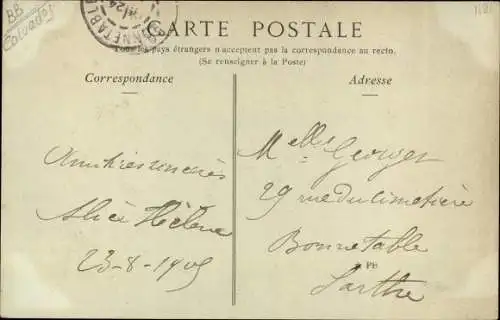 BB
Calvados
CARTE POSTALE
Tous les pays étrangers n'acceptent pas la correspondance au recto.
(Se renseigner à la Poste)
Correspondance
Adresse
Amitiés sincères
Alice Hélène
23-8-1905
Melle Georget
29 rue du Cimetière
Bonnetable
PE
Sarthe